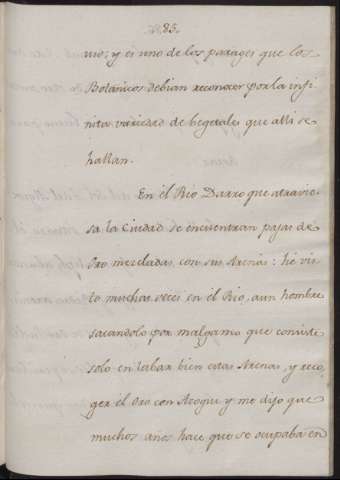 85.
nio; y es uno de los parages que los
Botánicos debian reconocer por la infi
nita variedad de begetales que alli se
hallan.
En el Rio Darro que atravie
sa la Ciudad se encuentran pajas de
Oro mezcladas, con sus Arenas: hé vis
to muchas veces en el Rio, a un hombre
sacandolo por malgama que consiste
solo en labar bien estas Arenas, y reco
ger el Oro con Azogue y me dijo que
muchos años hace que se ocupaba en